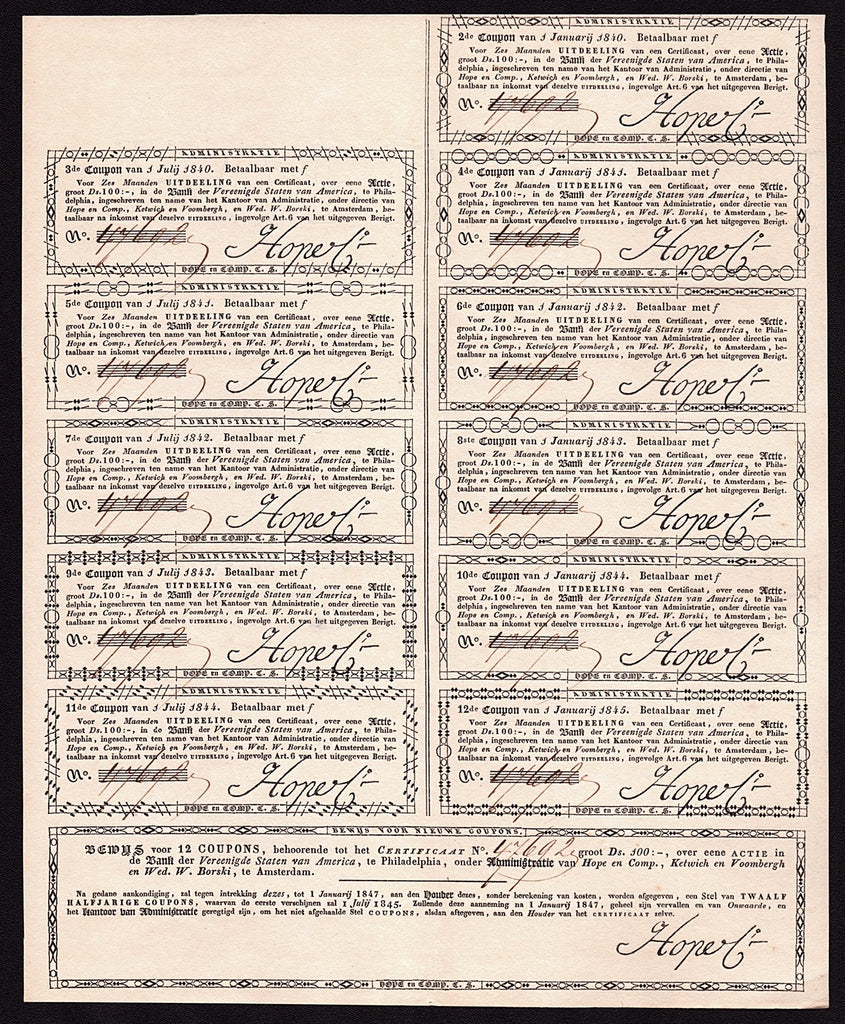 ADMINISTRATIE
2de Coupon van 1 Januarij 1840. Betaalbaar met f
Voor Zes Maanden UITDEELING van een Certificaat, over eene Actie,
groot Ds. 100:-, in de Bank der Vereenigde Staten van America, te Phila-
delphia, ingeschreven ten name van het Kantoor van Administratie, onder directie van
Hope en Comp., Ketwich en Voombergh, en Wed. W. Borski, te Amsterdam, be-
taalbaar na inkomst van dezelve UITDEELING, ingevolge Art. 6 van het uitgegeven Berigt.
No. 47692 Hope & Co
HOPE en COMP. C. S.
ADMINISTRATIE
3de Coupon van 1 Julij 1840. Betaalbaar met f
Voor Zes Maanden UITDEELING van een Certificaat, over eene Actie,
groot Ds. 100:-, in de Bank der Vereenigde Staten van America, te Phila-
delphia, ingeschreven ten name van het Kantoor van Administratie, onder directie van
Hope en Comp., Ketwich en Voombergh, en Wed. W. Borski, te Amsterdam, be-
taalbaar na inkomst van dezelve UITDEELING, ingevolge Art. 6 van het uitgegeven Berigt.
No. 47692 Hope & Co
HOPE en COMP. C. S.
ADMINISTRATIE
4de Coupon van 1 Januarij 1841. Betaalbaar met f
Voor Zes Maanden UITDEELING van een Certificaat, over eene Actie,
groot Ds. 100:-, in de Bank der Vereenigde Staten van America, te Phila-
delphia, ingeschreven ten name van het Kantoor van Administratie, onder directie van
Hope en Comp., Ketwich en Voombergh, en Wed. W. Borski, te Amsterdam, be-
taalbaar na inkomst van dezelve UITDEELING, ingevolge Art. 6 van het uitgegeven Berigt.
No. 47692 Hope & Co
HOPE en COMP. C. S.
ADMINISTRATIE
5de Coupon van 1 Julij 1841. Betaalbaar met f
Voor Zes Maanden UITDEELING van een Certificaat, over eene Actie,
groot Ds. 100:-, in de Bank der Vereenigde Staten van America, te Phila-
delphia, ingeschreven ten name van het Kantoor van Administratie, onder directie van
Hope en Comp., Ketwich en Voombergh, en Wed. W. Borski, te Amsterdam, be-
taalbaar na inkomst van dezelve UITDEELING, ingevolge Art. 6 van het uitgegeven Berigt.
No. 47692 Hope & Co
HOPE en COMP. C. S.
ADMINISTRATIE
6de Coupon van 1 Januarij 1842. Betaalbaar met f
Voor Zes Maanden UITDEELING van een Certificaat, over eene Actie,
groot Ds. 100:-, in de Bank der Vereenigde Staten van America, te Phila-
delphia, ingeschreven ten name van het Kantoor van Administratie, onder directie van
Hope en Comp., Ketwich en Voombergh, en Wed. W. Borski, te Amsterdam, be-
taalbaar na inkomst van dezelve UITDEELING, ingevolge Art. 6 van het uitgegeven Berigt.
No. 47692 Hope & Co
HOPE en COMP. C. S.
ADMINISTRATIE
7de Coupon van 1 Julij 1842. Betaalbaar met f
Voor Zes Maanden UITDEELING van een Certificaat, over eene Actie,
groot Ds. 100:-, in de Bank der Vereenigde Staten van America, te Phila-
delphia, ingeschreven ten name van het Kantoor van Administratie, onder directie van
Hope en Comp., Ketwich en Voombergh, en Wed. W. Borski, te Amsterdam, be-
taalbaar na inkomst van dezelve UITDEELING, ingevolge Art. 6 van het uitgegeven Berigt.
No. 47692 Hope & Co
HOPE en COMP. C. S.
ADMINISTRATIE
8ste Coupon van 1 Januarij 1843. Betaalbaar met f
Voor Zes Maanden UITDEELING van een Certificaat, over eene Actie,
groot Ds. 100:-, in de Bank der Vereenigde Staten van America, te Phila-
delphia, ingeschreven ten name van het Kantoor van Administratie, onder directie van
Hope en Comp., Ketwich en Voombergh, en Wed. W. Borski, te Amsterdam, be-
taalbaar na inkomst van dezelve UITDEELING, ingevolge Art. 6 van het uitgegeven Berigt.
No. 47692 Hope & Co
HOPE en COMP. C. S.
ADMINISTRATIE
9de Coupon van 1 Julij 1843. Betaalbaar met f
Voor Zes Maanden UITDEELING van een Certificaat, over eene Actie,
groot Ds. 100:-, in de Bank der Vereenigde Staten van America, te Phila-
delphia, ingeschreven ten name van het Kantoor van Administratie, onder directie van
Hope en Comp., Ketwich en Voombergh, en Wed. W. Borski, te Amsterdam, be-
taalbaar na inkomst van dezelve UITDEELING, ingevolge Art. 6 van het uitgegeven Berigt.
No. 47692 Hope & Co
HOPE en COMP. C. S.
ADMINISTRATIE
10de Coupon van 1 Januarij 1844. Betaalbaar met f
Voor Zes Maanden UITDEELING van een Certificaat, over eene Actie,
groot Ds. 100:-, in de Bank der Vereenigde Staten van America, te Phila-
delphia, ingeschreven ten name van het Kantoor van Administratie, onder directie van
Hope en Comp., Ketwich en Voombergh, en Wed. W. Borski, te Amsterdam, be-
taalbaar na inkomst van dezelve UITDEELING, ingevolge Art. 6 van het uitgegeven Berigt.
No. 47692 Hope & Co
HOPE en COMP. C. S.
ADMINISTRATIE
11de Coupon van 1 Julij 1844. Betaalbaar met f
Voor Zes Maanden UITDEELING van een Certificaat, over eene Actie,
groot Ds. 100:-, in de Bank der Vereenigde Staten van America, te Phila-
delphia, ingeschreven ten name van het Kantoor van Administratie, onder directie van
Hope en Comp., Ketwich en Voombergh, en Wed. W. Borski, te Amsterdam, be-
taalbaar na inkomst van dezelve UITDEELING, ingevolge Art. 6 van het uitgegeven Berigt.
No. 47692 Hope & Co
HOPE en COMP. C. S.
ADMINISTRATIE
12de Coupon van 1 Januarij 1845. Betaalbaar met f
Voor Zes Maanden UITDEELING van een Certificaat, over eene Actie,
groot Ds. 100:-, in de Bank der Vereenigde Staten van America, te Phila-
delphia, ingeschreven ten name van het Kantoor van Administratie, onder directie van
Hope en Comp., Ketwich en Voombergh, en Wed. W. Borski, te Amsterdam, be-
taalbaar na inkomst van dezelve UITDEELING, ingevolge Art. 6 van het uitgegeven Berigt.
No. 47692 Hope & Co
HOPE en COMP. C. S.
BEWIJS VOOR NIEUWE COUPONS.
BEWIJS voor 12 COUPONS, behoorende tot het CERTIFICAAT No. 47692 groot Ds. 100:-, over eene ACTIE in
de Bank der Vereenigde Staten van America, te Philadelphia, onder Administratie van Hope en Comp., Ketwich en Voombergh
en Wed. W. Borski, te Amsterdam.
Na gedane aankondiging, zal tegen intrekking dezes, tot 1 Januarij 1847, aan den Houder dezes, zonder berekening van kosten, worden afgegeven, een Stel van TWAALF
HALFJARIGE COUPONS, waarvan de eerste verschijnen zal 1 Julij 1845. Zullende deze aanneming na 1 Januarij 1847, geheel zijn vervallen en van Onwaarde, en
het Kantoor van Administratie geregtigd zijn, om het niet afgehaalde Stel COUPONS, alsdan aftegeven, aan den Houder van het CERTIFICAAT zelve.
Hope & Co
HOPE en COMP. C. S.